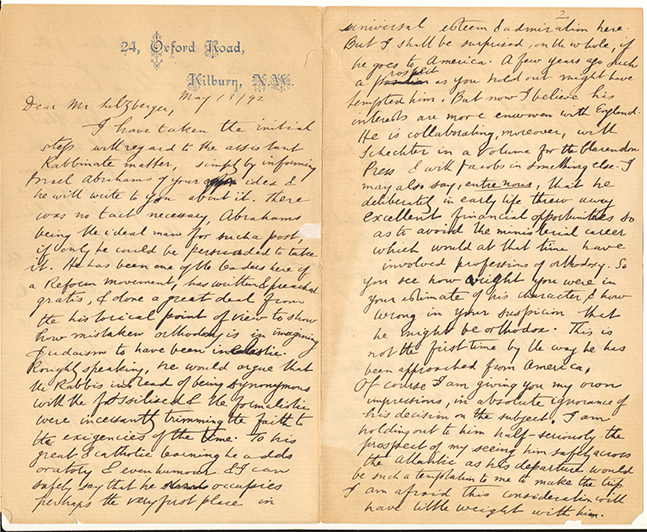 24, Oxford Road,
Kilburn, N.W.
May 13/92
Dear Mr Sulzberger,
I have taken the initial
step with regard to the assistant
Rabbinate matter, simply by informing
Israel Abrahams of your idea &
he will write to you about it. There
was no tact necessary, Abrahams
being the ideal man for such a post,
if only he could be persuaded to take
it. He has been one of the leaders here of
a Reform movement, has written & preached
gratis, & done a great deal from
the historical point of view to show
how mistaken orthodoxy is in imagining
Judaism to have been
Roughly speaking, he would argue that
the Rabbis instead of being synonymous
with the fossilised & the formalistic
were incessantly trimming the faith to
the exigencies of the time. To his
great & catholic learning he adds
oratory & even humour & I can
safely say that he occupies
perhaps the very first place in
2
universal esteem & admiration here.
But I shall be surprised, on the whole, if
he goes to America. A few years ago such
a prospect as you hold out might have
tempted him. But now I believe his
interests are more enwoven with England.
He is collaborating, moreover, with
Schechter in a volume for the Clarendon
Press & with Jacobs in something else. I
may also say, entre nous, that he
deliberately in early life threw away
excellent financial opportunities so
as to avoid the ministerial career
which would at that time have
involved professions of orthodoxy. So
you see how right you were in
your estimate of his character, & how
wrong in your suspicion that
he might be orthodox. This is
not the first time by the way he has
been approached from America.
Of course I am giving you my own
impressions, in absolute ignorance of
his decision on the subject. I am
holding out to him half-seriously the
prospect of my seeing him safely across
the Atlantic as his departure would
be such a temptation to me to make the trip.
I am afraid this consideration will
have little weight with him.